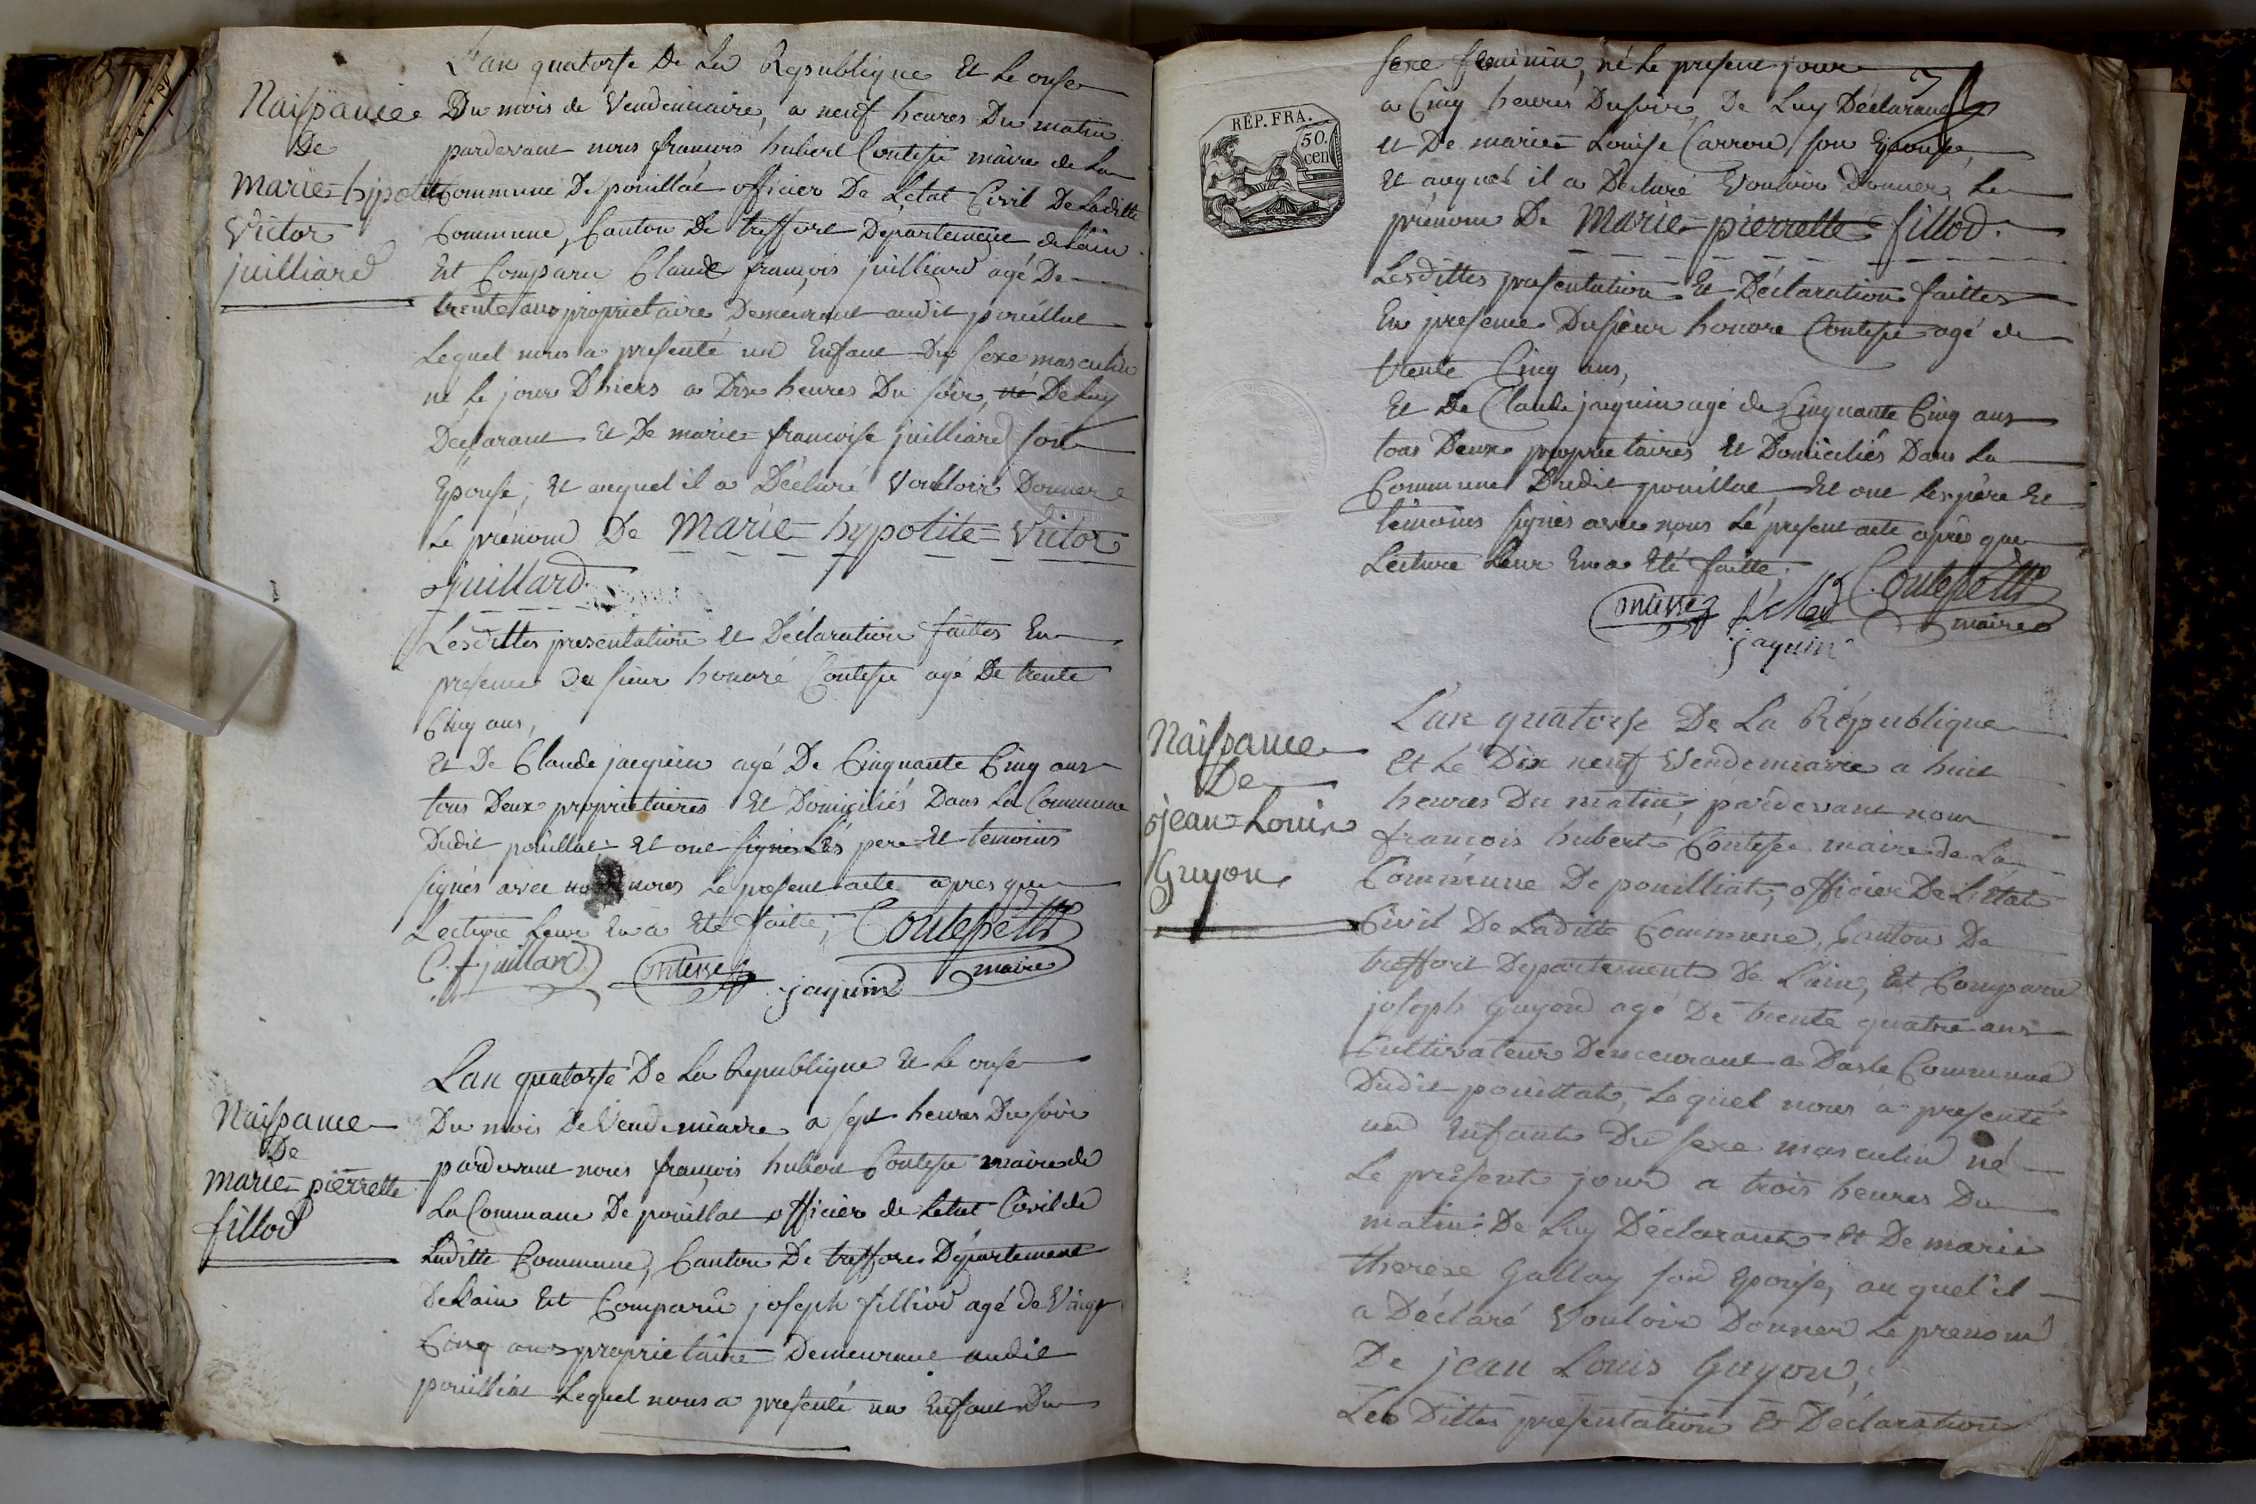 Naissance
De
Marie=hypolite
Victor
juilliard
L'an quatorse De La Republique Et Le onse
Du mois de Vendemiaire, a neuf heures Du matin
pardevant nous françois hubert Contesse maire de La
Commune De pouillat officier De L'etat Civil De Laditte
Commune, Canton De treffort Departement de Lain
Est Comparu Claude françois juilliard agé De
trente ans proprietaire Demeurant audit pouillat
Lequel nous a presenté un Enfant Du sexe masculin
né Le jour D'hiers a Dix heures Du soir, né De Luy
Déclarant Et De marie françoise juilliard son
Epouse, Et auquel il a Déclaré Vouloir Donner
Le prénom De Marie=hypolite=Victor
juillard
Lesdittes presentation Et Déclaration faittes En
presence du sieur honoré Contesse agé De trente
Cinq ans,
Et De Claude jacquin agé De Cinquante Cinq ans
tous Deux proprietaires Et Domiciliés Dans La Commune
Dudit pouillat Et ont signés Les pere Et temoins
signés avec nous Le present acte apres que
Lecture Leur En a Eté faitte;
C. f. juillard
jaquin
maire
Naissance
De
marie=pierrette
fillod
Lan quatorse De La Republique Et Le onse
Du mois De Vendemiaire a sept heures Du soir
pardevant nous françois hubert Contesse maire de
La Commune De pouillat officier de Letat Civil de
Laditte Commune, Canton De treffort Département
De Lain Est Comparu joseph filliod agé de Vingt
Cinq ans proprietaire Demeurant audit
pouilliat Lequel nous a presenté un Enfant Du
RÉP. FRA.
50.
cen
sexe feminin, né Le present jour
a Cinq heures Du soir, De Luy Déclarant
Et De marie Louise Carron son Epouse,
Et auquel il a Déclaré Vouloir Donner Le
prénom De Marie=pierrette=fillod.
Lesdittes presentation Et Déclaration faittes
En presence Du sieur honoré Contesse agé de
trente Cinq ans,
Et De Claude jacquin agé de Cinquante Cinq ans
tous Deux proprietaires Et Domiciliés Dans La
Commune Dudit pouillat, Et ont Les père Et
témoins signés avec nous Le present acte après que
Lecture Leur En a Eté faitte;
jaquin
maire
Naissance
De
jean=Louis
Guyon
L'an quatorse De La République
Et Le Dix neuf Vendemiaire a huit
heures Du matin, pardevant nous
françois hubert Contesse maire de La
Commune De pouilliat, officier De L'Etat
Civil De Laditte Commune, Canton De
treffort Departement De L'ain, Est Comparu
joseph Guyon agé De trente quatre ans
Cultivateur Demeurant a Commune
Dudit pouillat, Lequel nous a presenté
un Enfant Du sexe masculin né
Le present jour a trois heures Du
matin De Luy Déclarant Et De marie
therese Gallay son Epouse, auquel il
a Déclaré Vouloir Donner Le prenom
De jean Louis Guyon,
Les Dittes presentation & Déclaration